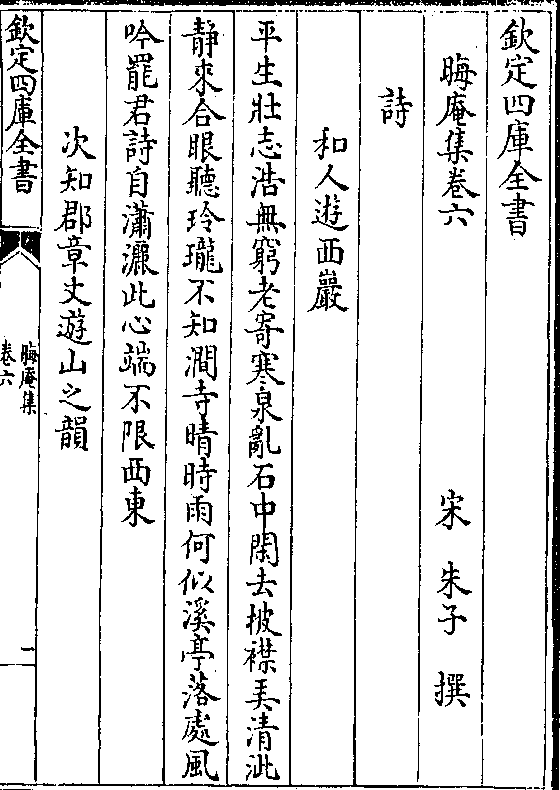 欽定四庫全書
晦庵集卷六
宋 朱子 撰
詩
和人遊西巖
平生壯志浩無窮老寄寒泉亂石中閑去披襟弄清泚
靜來合眼聽玲瓏不知澗寺晴時雨何似溪亭落處風
吟罷君詩自瀟灑此心端不限西東
次知郡章丈遊山之韻
欽定四庫全書
晦庵集
卷六
一